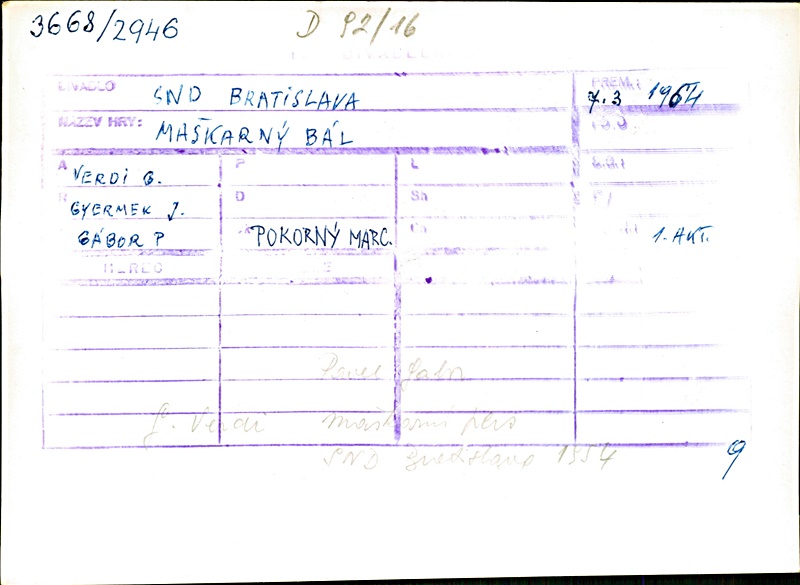 3668/2946 D 92/16
DIVADLO SND BRATISLAVA PREM.: 7.3 1964
NÁZEV HRY: MAŠKARNÝ BÁL
A VERDI G. P L
R GYERMEK J. D Sb
GÁBOR P POKORNÝ MARC. 1. AKT.
HEREC
Pavel Gabor
G. Verdi
SND Bratislava 1954
9